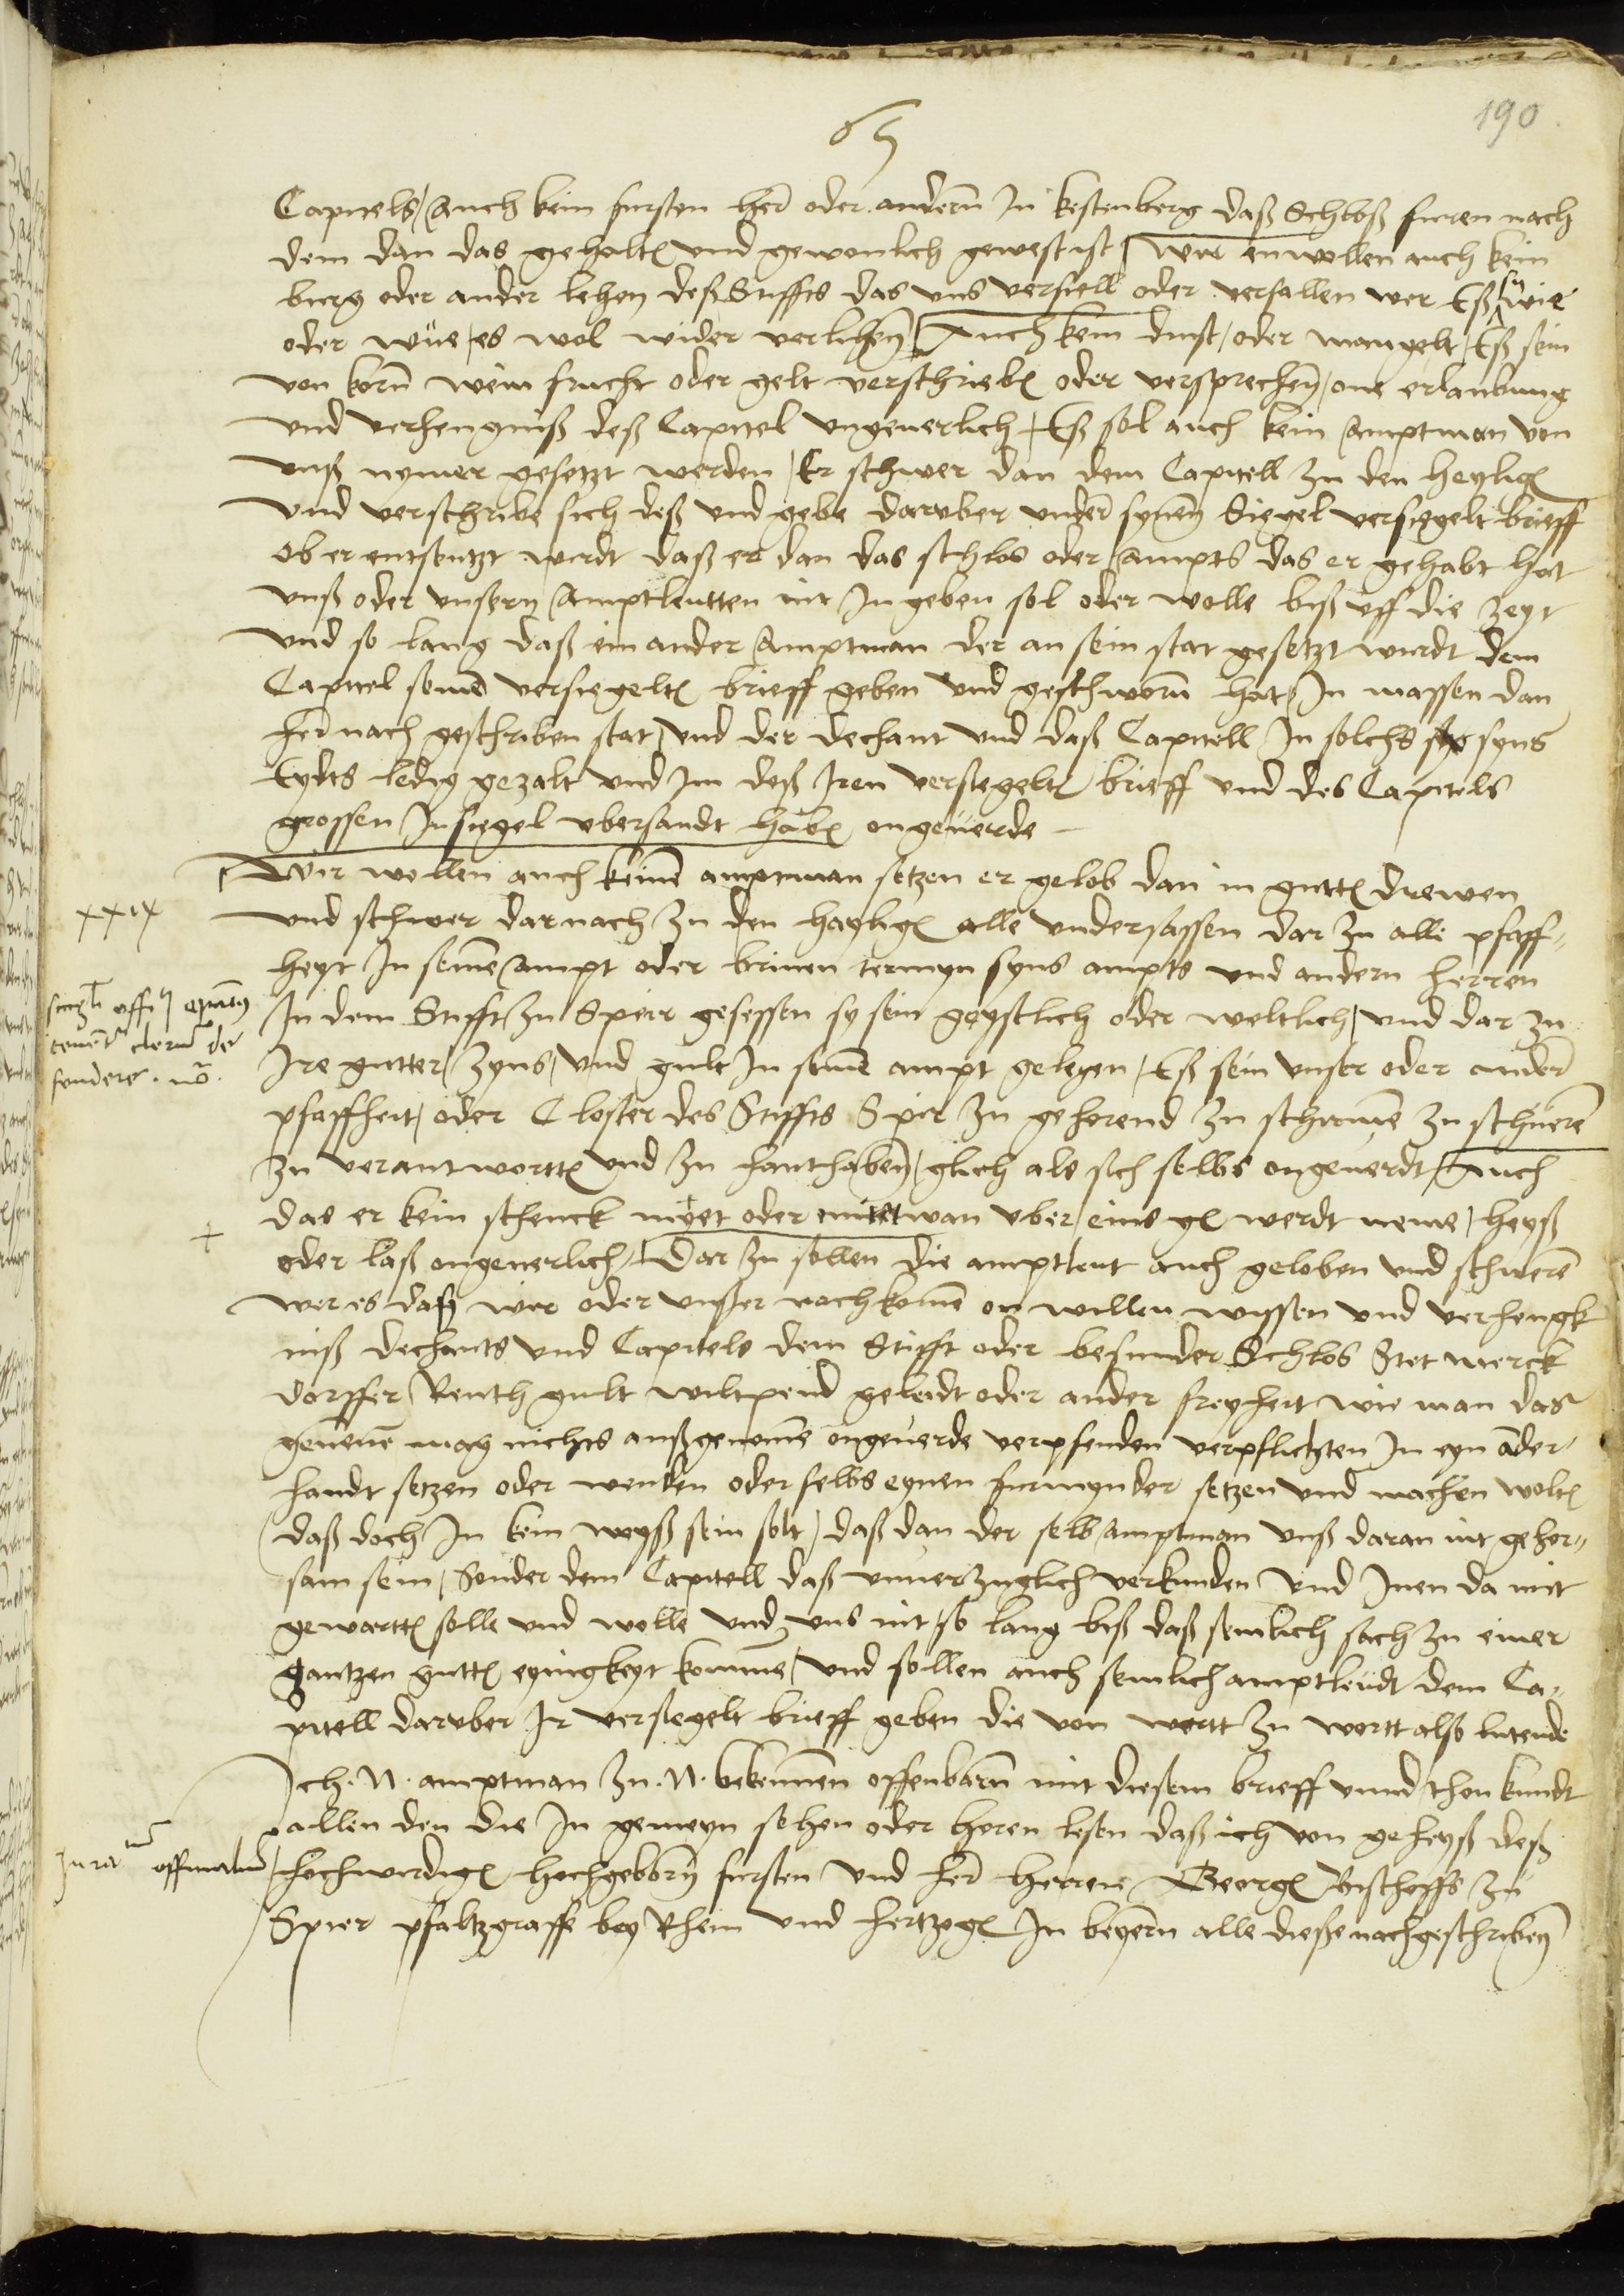 190
65
Capitels / Auch kein fursten her oder andern In kestenberg daß Schloß furen nach
dem dan das gehalten und gewonlich gewest ist / Wir enwollen auch kein
burg oder ander lehen deß Stiffts das uns verfiell oder verfallen wer Eß wie
oder wue / es wol wider verlichen / Auch kein dinst / oder mangelt / Eß sein
von korn wein frucht oder gelt verschrieben oder versprechen / one erlaubung
und verhengniß deß Capitel ungeuerlich / Eß sol auch kein Amptman von
unß nymer gesetzt werden / Er schwer dan dem Capitell zu den heyligen
und verschribe sich deß und gebe daruber under synen Siegel versiegelt brieff
ob er entseutzt wirdt daß er dan das schlos oder Ampts das er gehabt hat
unß oder unsern Amptleutten nit In geben sol oder wolle biß uff die zeyt
und so lang daß ein ander Amptman der an sein stat gesetzt wurdt dem
Capitel seinen versiegelten brieff geben und geschworn hat / In massen dan
her nach geschriben stat / und der dechant und daß Capitell In solchs syns
Eydts ledig gezalt und Im deß Iren versiegelten brieff und des Capitels
grossen Insiegel ubersandt haben ongeuerde
XXIX
Wir wollen auch keinen amptman setzen er gelob dan in gutten drewen
und schwer darnach zu den hayligen alle undersassen dar zu alle pfaff
heyt In seinem Ampt oder brinen termyn syns ampts und andern herren
In dem Stifft zu Speir gesessen sy sein geystlich oder weltlich / und dar zu
Ire gutter / zyns / und gult In seinem ampt gelegen / Eß sein unser oder ander
pfaffheit / oder Closter des Stiffts Spir zu gehorend zu schirmen zu schueren
zu verantwortten und zu hanthaben / glich als sich selbs ongeuerdt / Auch
das er kein schenck myet oder mitetwan uber / eins gl werdt neme / heyß
oder laß ongeuerlich / Dar zu sollen die amptleut auch geloben und schweren
wer es daß wir oder unßer nachkomen on willen wyssen und verhengk
niß dechants und Capitels dem Stifft oder besunder Schlos Stet merck
dorffer Renth gult wiltpend geleidt oder ander freyheit wie man das
genenen mag nichts außgenomen ongeuerde verpfenden verpflichten In eyn ander
handt setzen oder wenden oder selbs eynen furmynder setzen und machen wolten
daß doch In kein weyß sein solt / daß dan der selb Amptman unß daran nit gehor
sam sein / Sonder dem Capitell daß unuerzuglich verkunden und Inen da mit
gewartten solle und wolle und uns nit / so lang biß daß semlich sach zu einer
gantzen gutten eyingkeyt komme / und sollen auch semlich amptleudt dem Ca
pitell daruber Ir versiegelt brieff geben die von wortt zu wortt also lutende
Ich . N . amptman zu . N . bekennen offenbarn mit diesem brieff unnd thon kundt
allen den die In gemeyn sehen oder horen lesen daß ich von geheyß deß
hochwirdigen hochgeborn fursten und her herren Georgen Bischoffs zu
Spier pfaltzgraffe bey Rhein und hertzogen In beyern alle dieße nachgeschriben